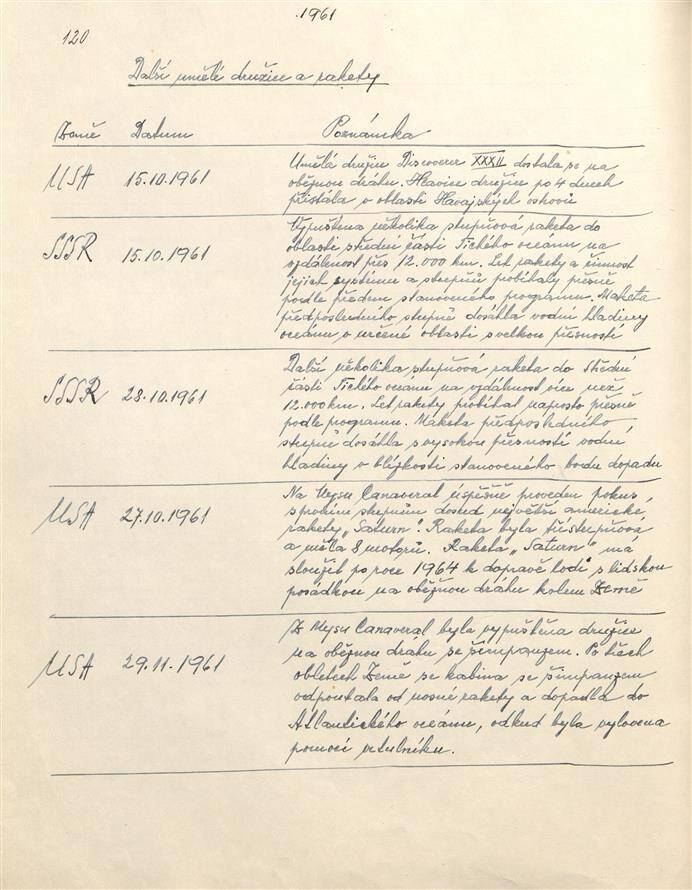 1961
120
Další umělé družice a rakety
Země Datum Poznámka
USA 15.10.1961 Umělá družice Discoverer XXXII dostala se na
oběžnou dráhu. Hlavice družice po 4 dnech
přistála v oblasti Havajských ostrovů
SSSR 15.10.1961 Vypuštěna několika stupňová raketa do
oblasti střední části Tichého oceánu na
vzdálenost přes 12.000 km. Let rakety a činnost
jejich systému a stupňů probíhaly přesně
podle předem stanoveného programu. Maketa
předposledního stupně dosáhla vodní hladiny
oceánu v určené oblasti s velkou přesností
SSSR 28.10.1961 Další několika stupňová raketa do střední
části Tichého oceánu na vzdálenost více než
12.000 km. Let rakety probíhal naprosto přesně
podle programu. Maketa předposledného
stupně dosáhla s vysokou přesností vodní
hladiny v blízkosti stanoveného bodu dopadu
USA 27.10.1961 Na Mysu Canaveral úspěšně proveden pokus
s prvním stupněm dosud největší americké
rakety „Saturn". Raketa byla třístupňová
a měla 8 motorů. Raketa „Saturn" má
sloužit po roce 1964 k dopravě lodí s lidskou
posádkou na oběžnou dráhu kolem Země
USA 29.11.1961 Z Mysu Canaveral byla vypuštěna družice
na oběžnou dráhu se šimpanzem. Po třech
obletech Země se kabina se šimpanzem
odpoutala od nosné rakety a dopadla do
Atlantického oceánu, odkud byla vylovena
pomocí vrtulníku.